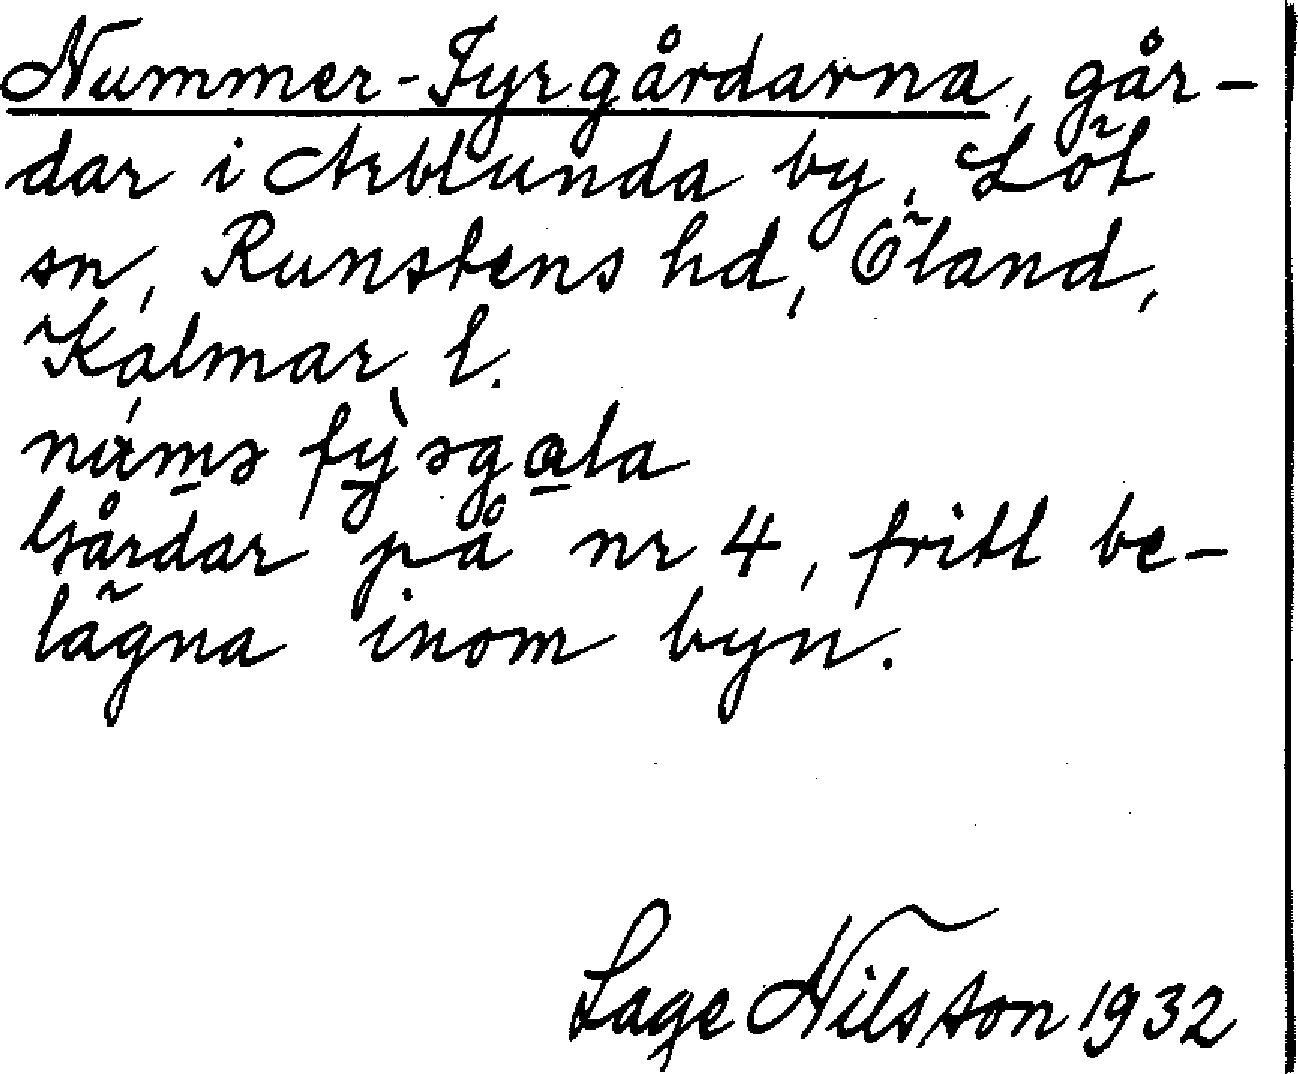 Nummer-Fyrgårdarna, går-
dar i Arblunda by, Löt
sn, Runstens hd, Öland,
Kalmar l.
fỳrgɑla
Gårdar på nr 4, fritt be-
lägna inom byn.
Lage Nilsson 1932